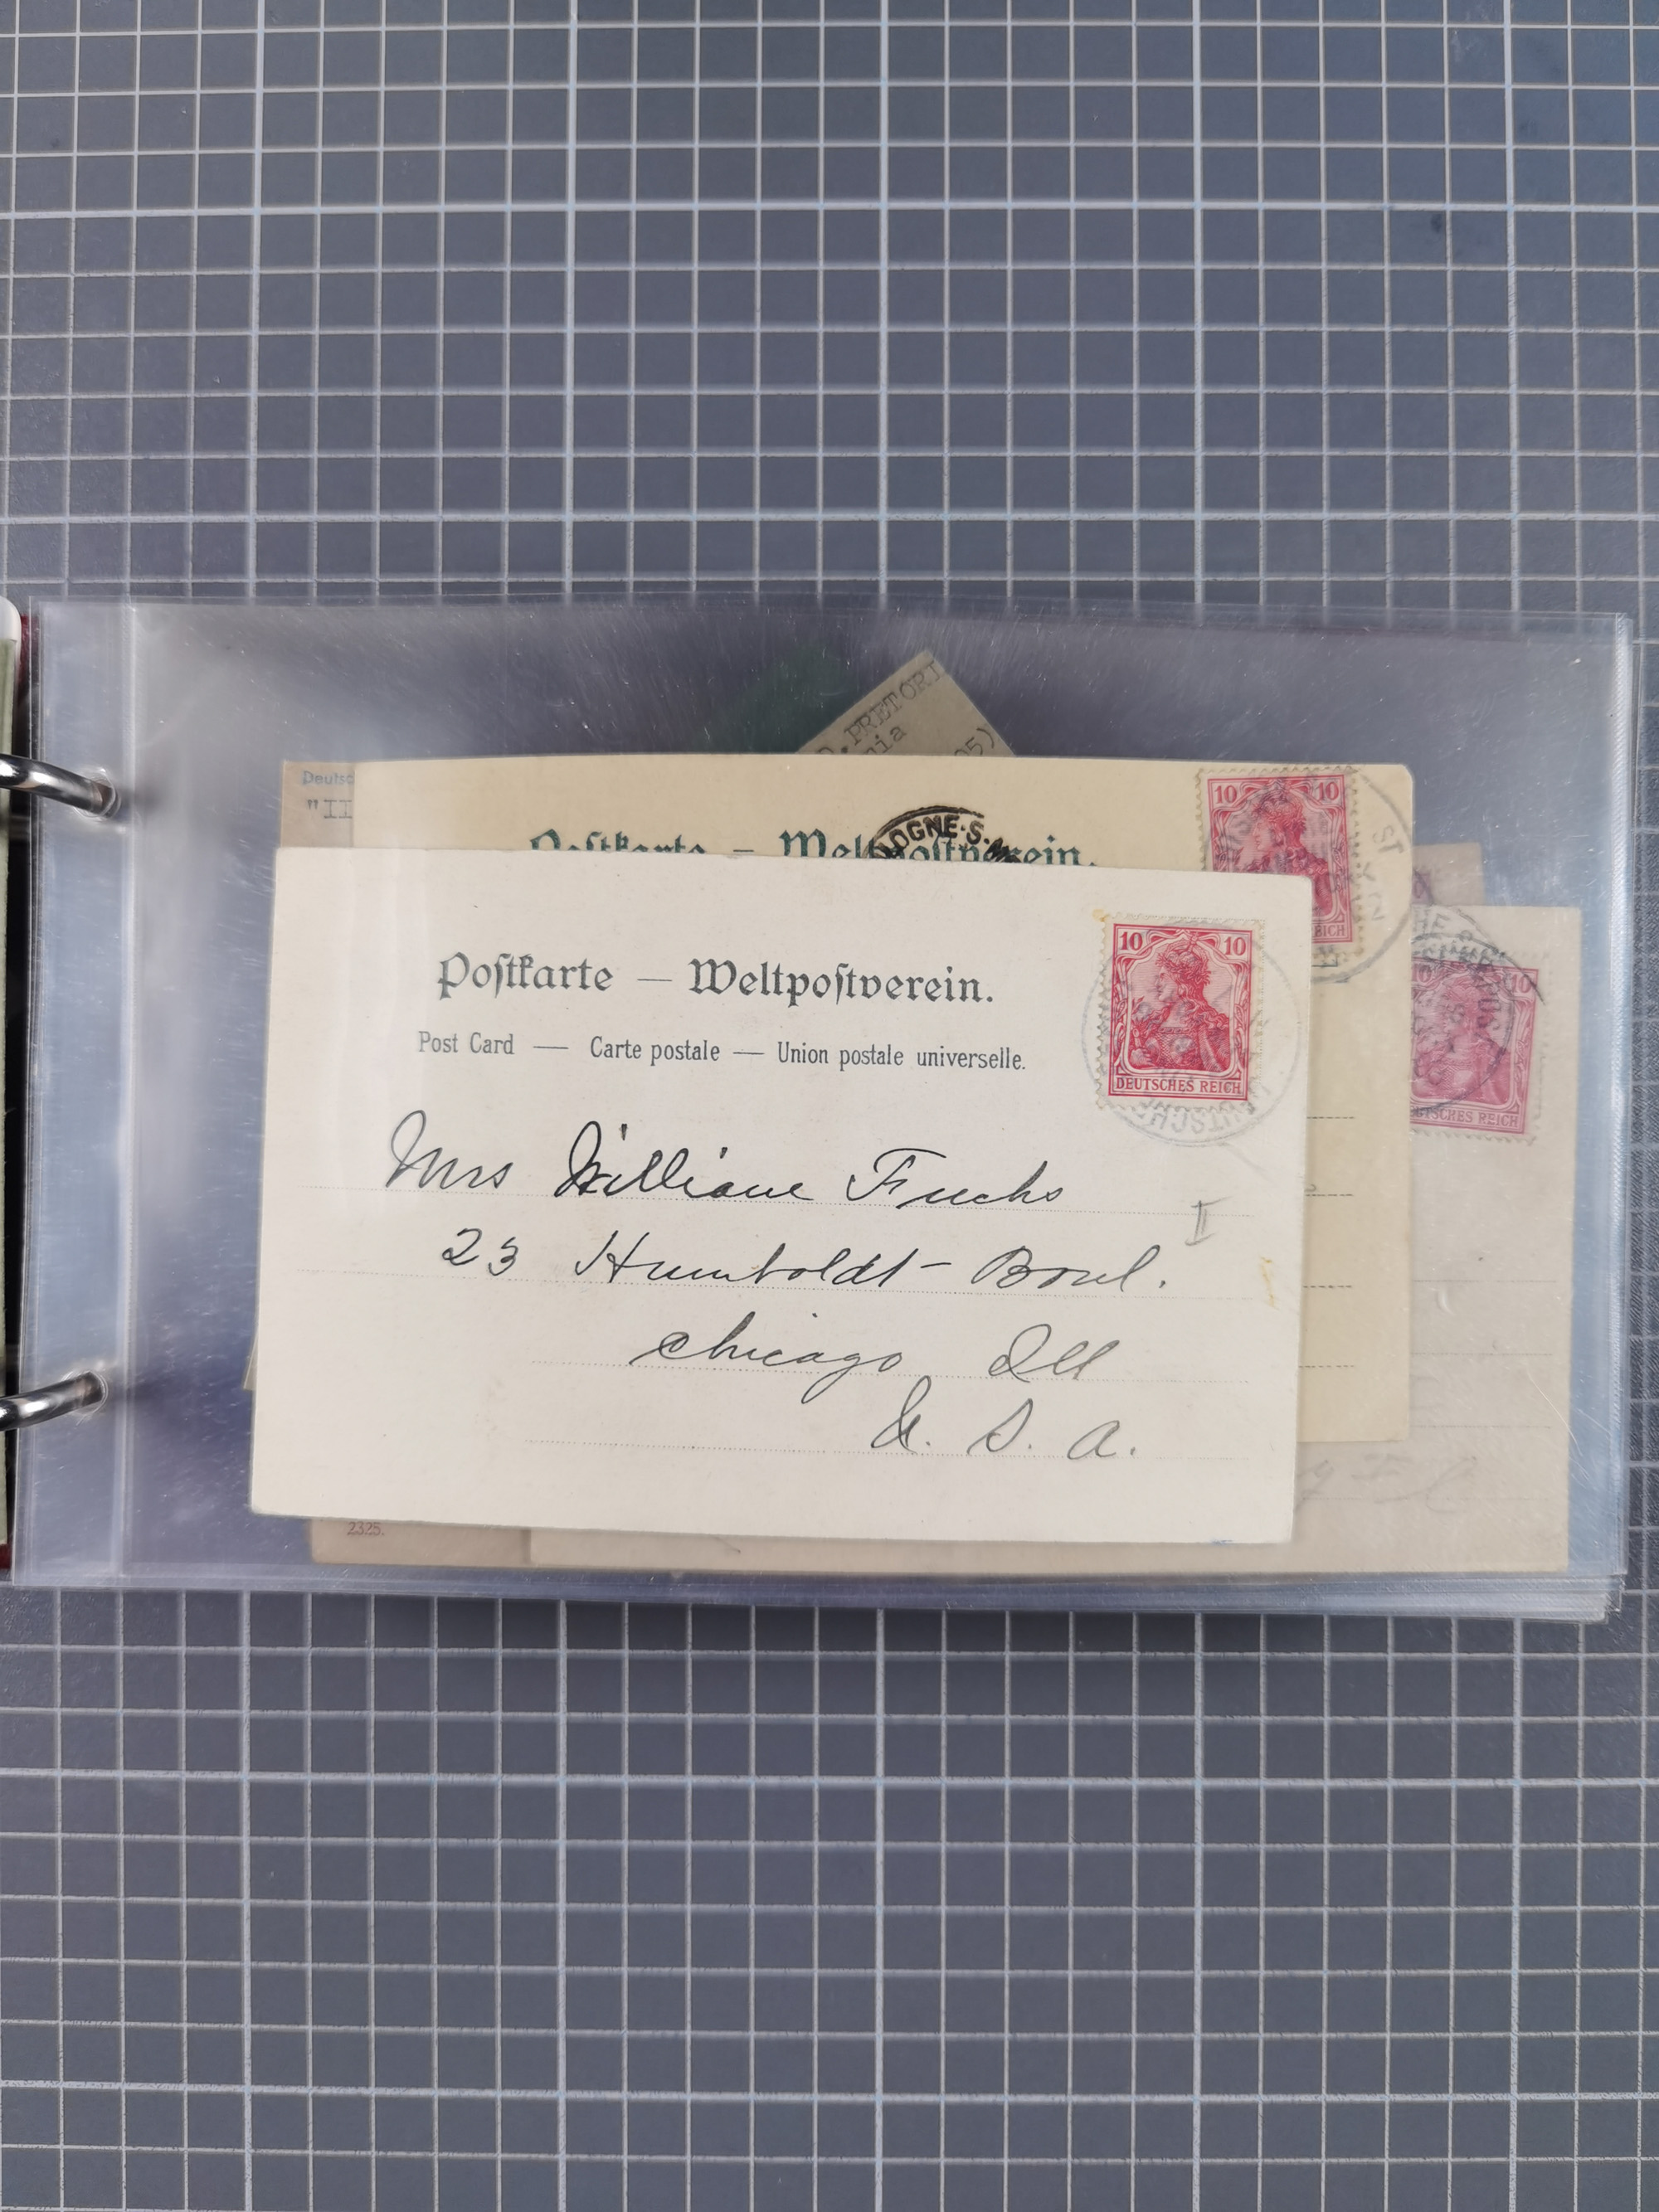 O.PRETORI
nia
05)
Deutsc
"II
OGNE-S.
Postkarte – Weltpostverein.
10 10
REICH
ST
Postkarte — Weltpostverein.
Post Card — Carte postale — Union postale universelle.
10 10
DEUTSCHES REICH
DEUTSCHE
10 10
TSCHES REICH
Mrs William Fuchs
II
23 Humboldt - Boul.
Chicago Ill
U. S. A.
2325.